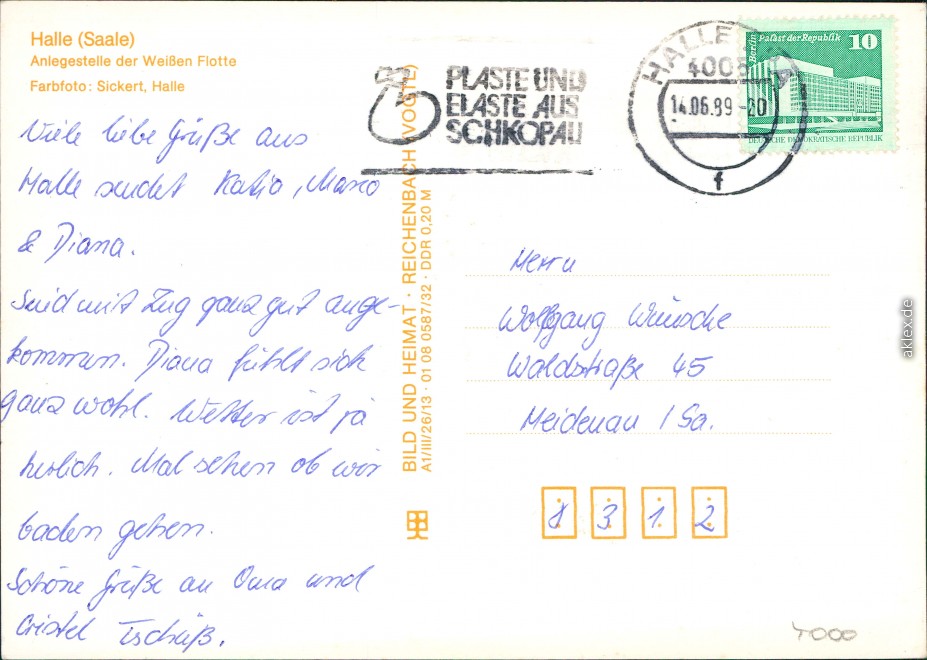 Halle (Saale)
Anlegestelle der Weißen Flotte
Farbfoto: Sickert, Halle
Viele liebe Grüße aus
Halle sendet Katja, Marco
& Diana.
Sind mit Zug ganz gut ange-
kommen. Diana fühlt sich
ganz wohl. Wetter ist ja
herlich. Mal sehen ob wir
baden gehen.
Schöne Grüße an Oma und
Cristel Tschüß.
BILD UND HEIMAT · REICHENBACH (VOGTL)
A1/III/26/13 · 01 08 0587/32 · DDR 0,20 M
PLASTE UND
ELASTE AUS
SCHKOPAU
HALLE
4008
14.06.89-20
f
Berlin Palast der Republik 10
DEUTSCHE DEMOKRATISCHE REPUBLIK
Herrn
Wolfgang Wünsche
Waldstraße 45
Heidenau / Sa.
8 3 1 2
aklex.de